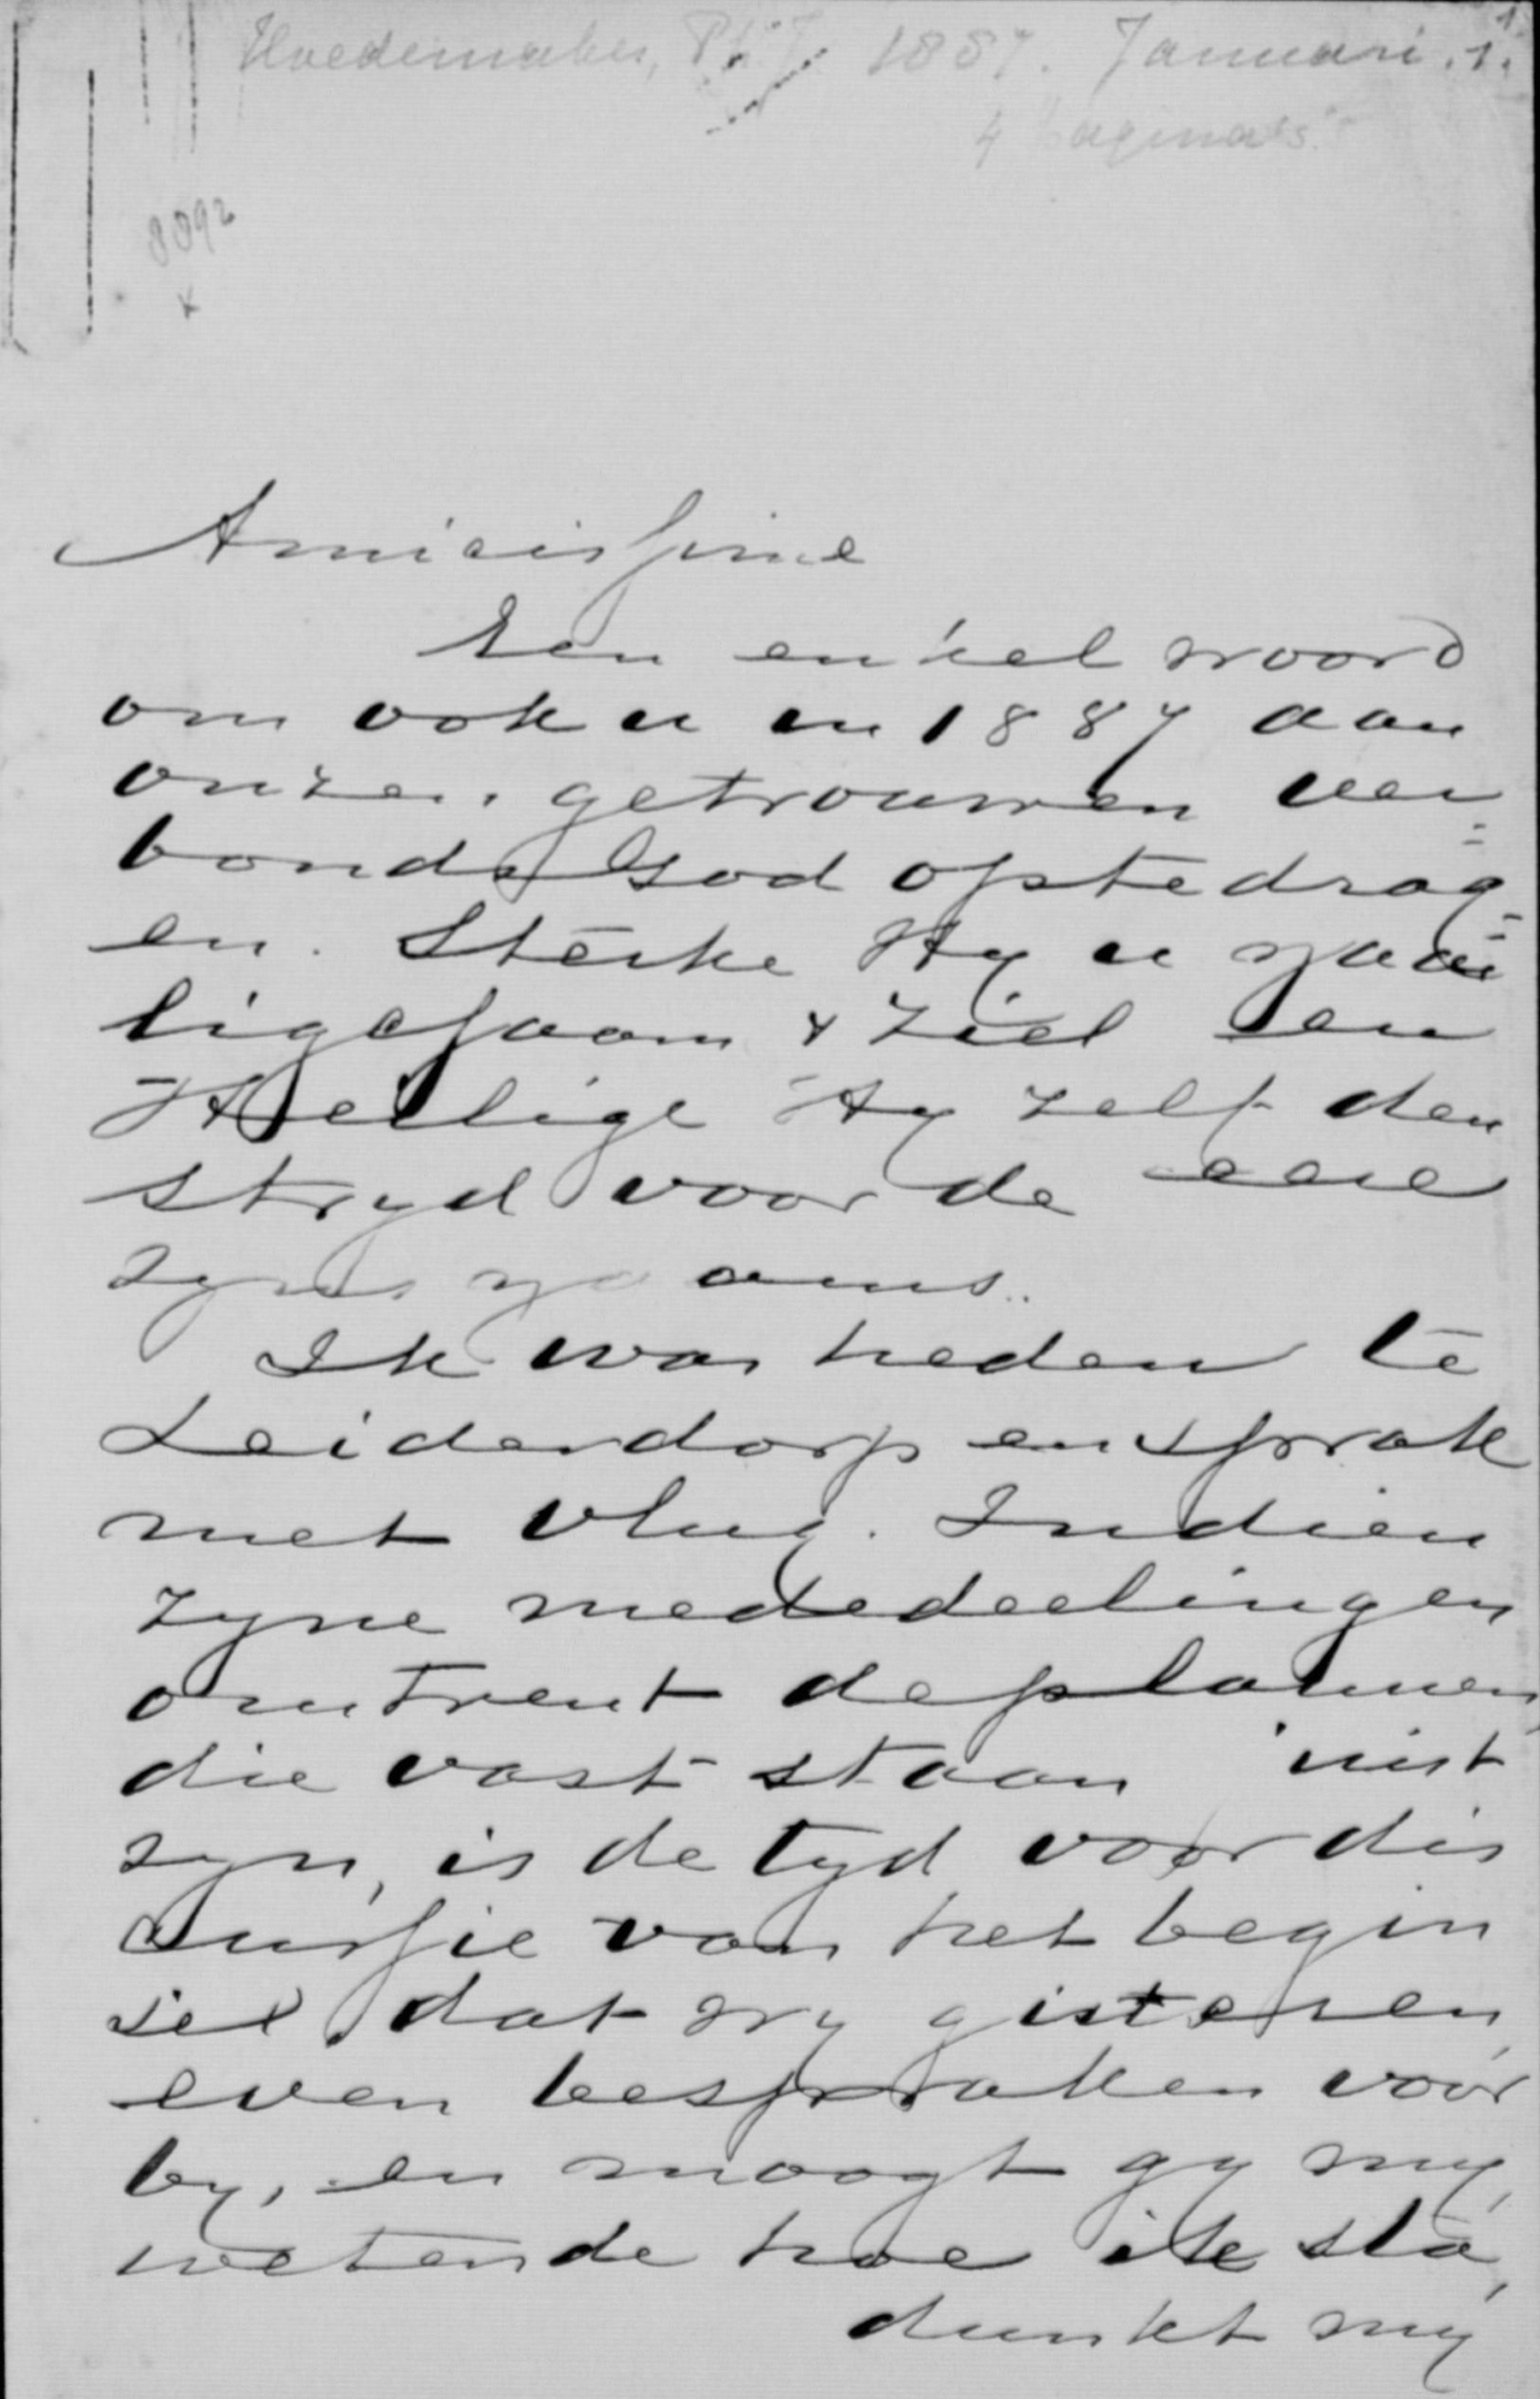 Hoedemaker, Ph. J. 1887. Januari. 1.
1.
4 pagina's.
8092
x
Amicissime
Een enkel woord
om ook u in 1887 aan
onzen getrouwen ver
=
bonds God optedrag
=
en. Sterke Hy u naar
ligchaam & ziel en
Heilige Hy zelf den
stryd voor de eere
zyns naams..
Ik was heden te
Leiderdorp en sprak
met Vlug. Indien
zyne mededeelingen
omtrent de plannen,
die vast staan juist
zyn, is de tyd voor dis
cussie van het begin
sel dat wy gisteren
even bespraken voor
by, en moogt gy my,
wetende hoe ik sta,
dunkt my